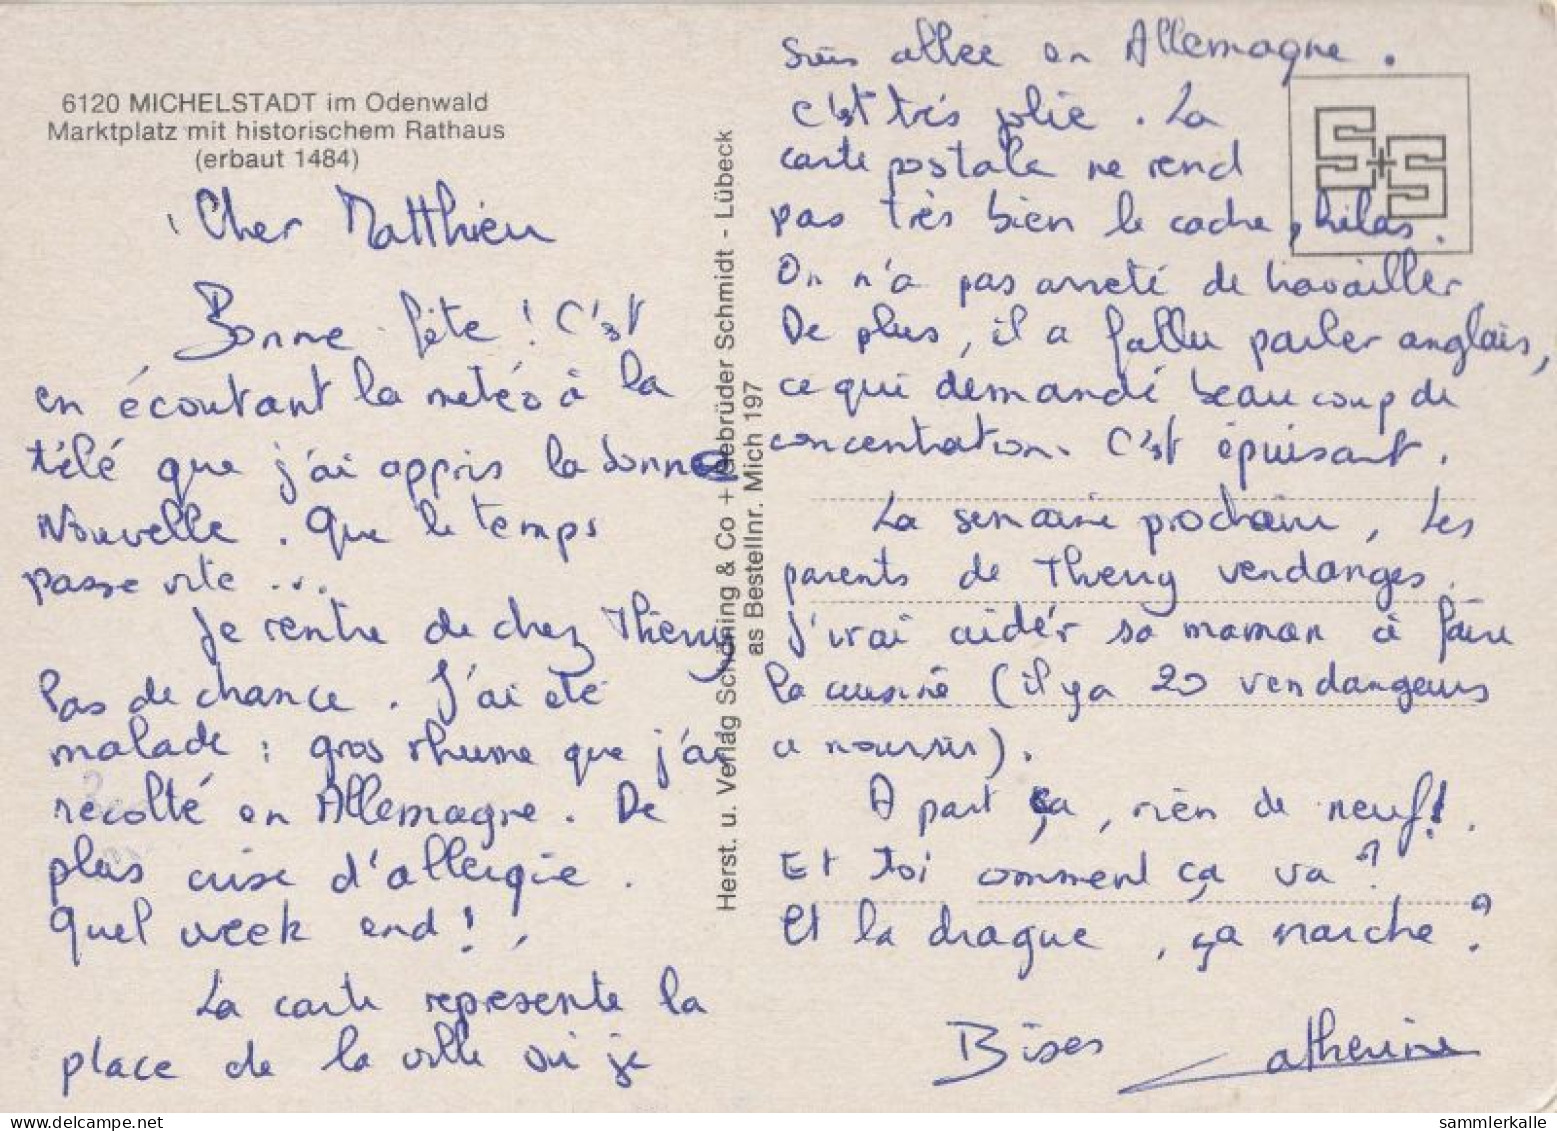 6120 MICHELSTADT im Odenwald
Marktplatz mit historischem Rathaus
(erbaut 1484)
Cher Matthieu
Bonne fête ! C'est
en écoutant la météo à la
télé que j'ai appris la bonne
nouvelle . Que le temps
passe vite ...
Je rentre de chez Thierry
Pas de chance . J'ai été
malade : gros rhume que j'ai
récolté en Allemagne . De
plus crise d'allergie .
Quel week end !
La carte représente la
place de la ville où je
Herst. u. Verlag Schöning & Co + Gebrüder Schmidt - Lübeck
as Bestellnr. Mich 197
suis allée en Allemagne .
C'est très jolie . La
carte postale ne rend
pas très bien le cadre , hélas .
On n'a pas arrêté de travailler
De plus , il a fallu parler anglais ,
ce qui demande beaucoup de
concentration . C'est épuisant .
La semaine prochaine , les
parents de Thierry vendanges .
J'irai aider sa maman à faire
la cuisine ( il y a 20 vendangeurs
a nourrir ) .
A part ça , rien de neuf ! .
Et toi comment ça va ?
Et la drague , ça marche ?
Bises Catherine
S+S
sammlerkalle